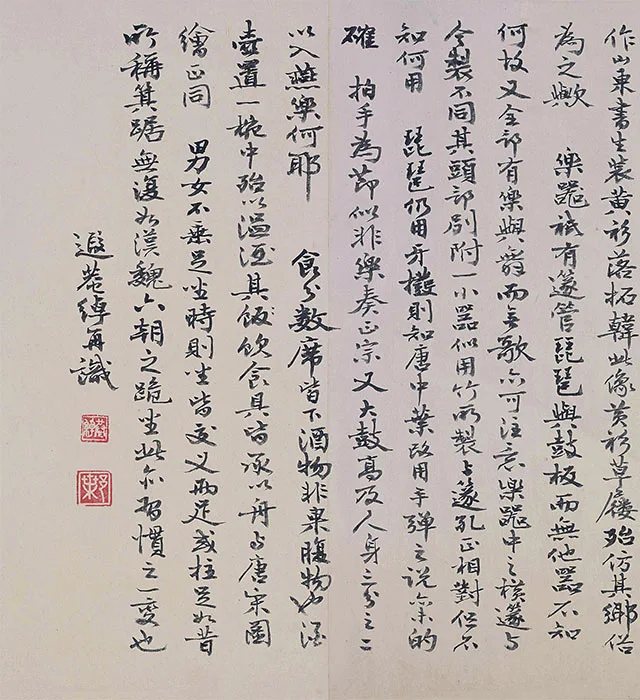 作山東書生裝黃衫落拓韓此像黃衫草屨殆仿其鄉俗
為之歟 樂器祇有篴管琵琶與鼓板而無他器不知
何故又全部有樂與舞而無歌亦可注意樂器中之橫篴与
今製不同其頭部別附一小器似用竹所製与篴孔正相對但不
知何用 琵琶仍用牙撥則知唐中葉改用手彈之說的
確 拍手為節似非樂奏正宗又大鼓高及人身三分之二
以入燕樂何耶 食分數席皆下酒物非果腹物也酒
壺置一椀中殆以溫酒其飯飲食具皆承以舟与唐宋圖
繪正同 男女不垂足坐時則坐皆交叉兩足或拄足如昔
所稱箕踞無復如漢魏六朝之跪坐此亦習慣之一變也
遐菴綽再識